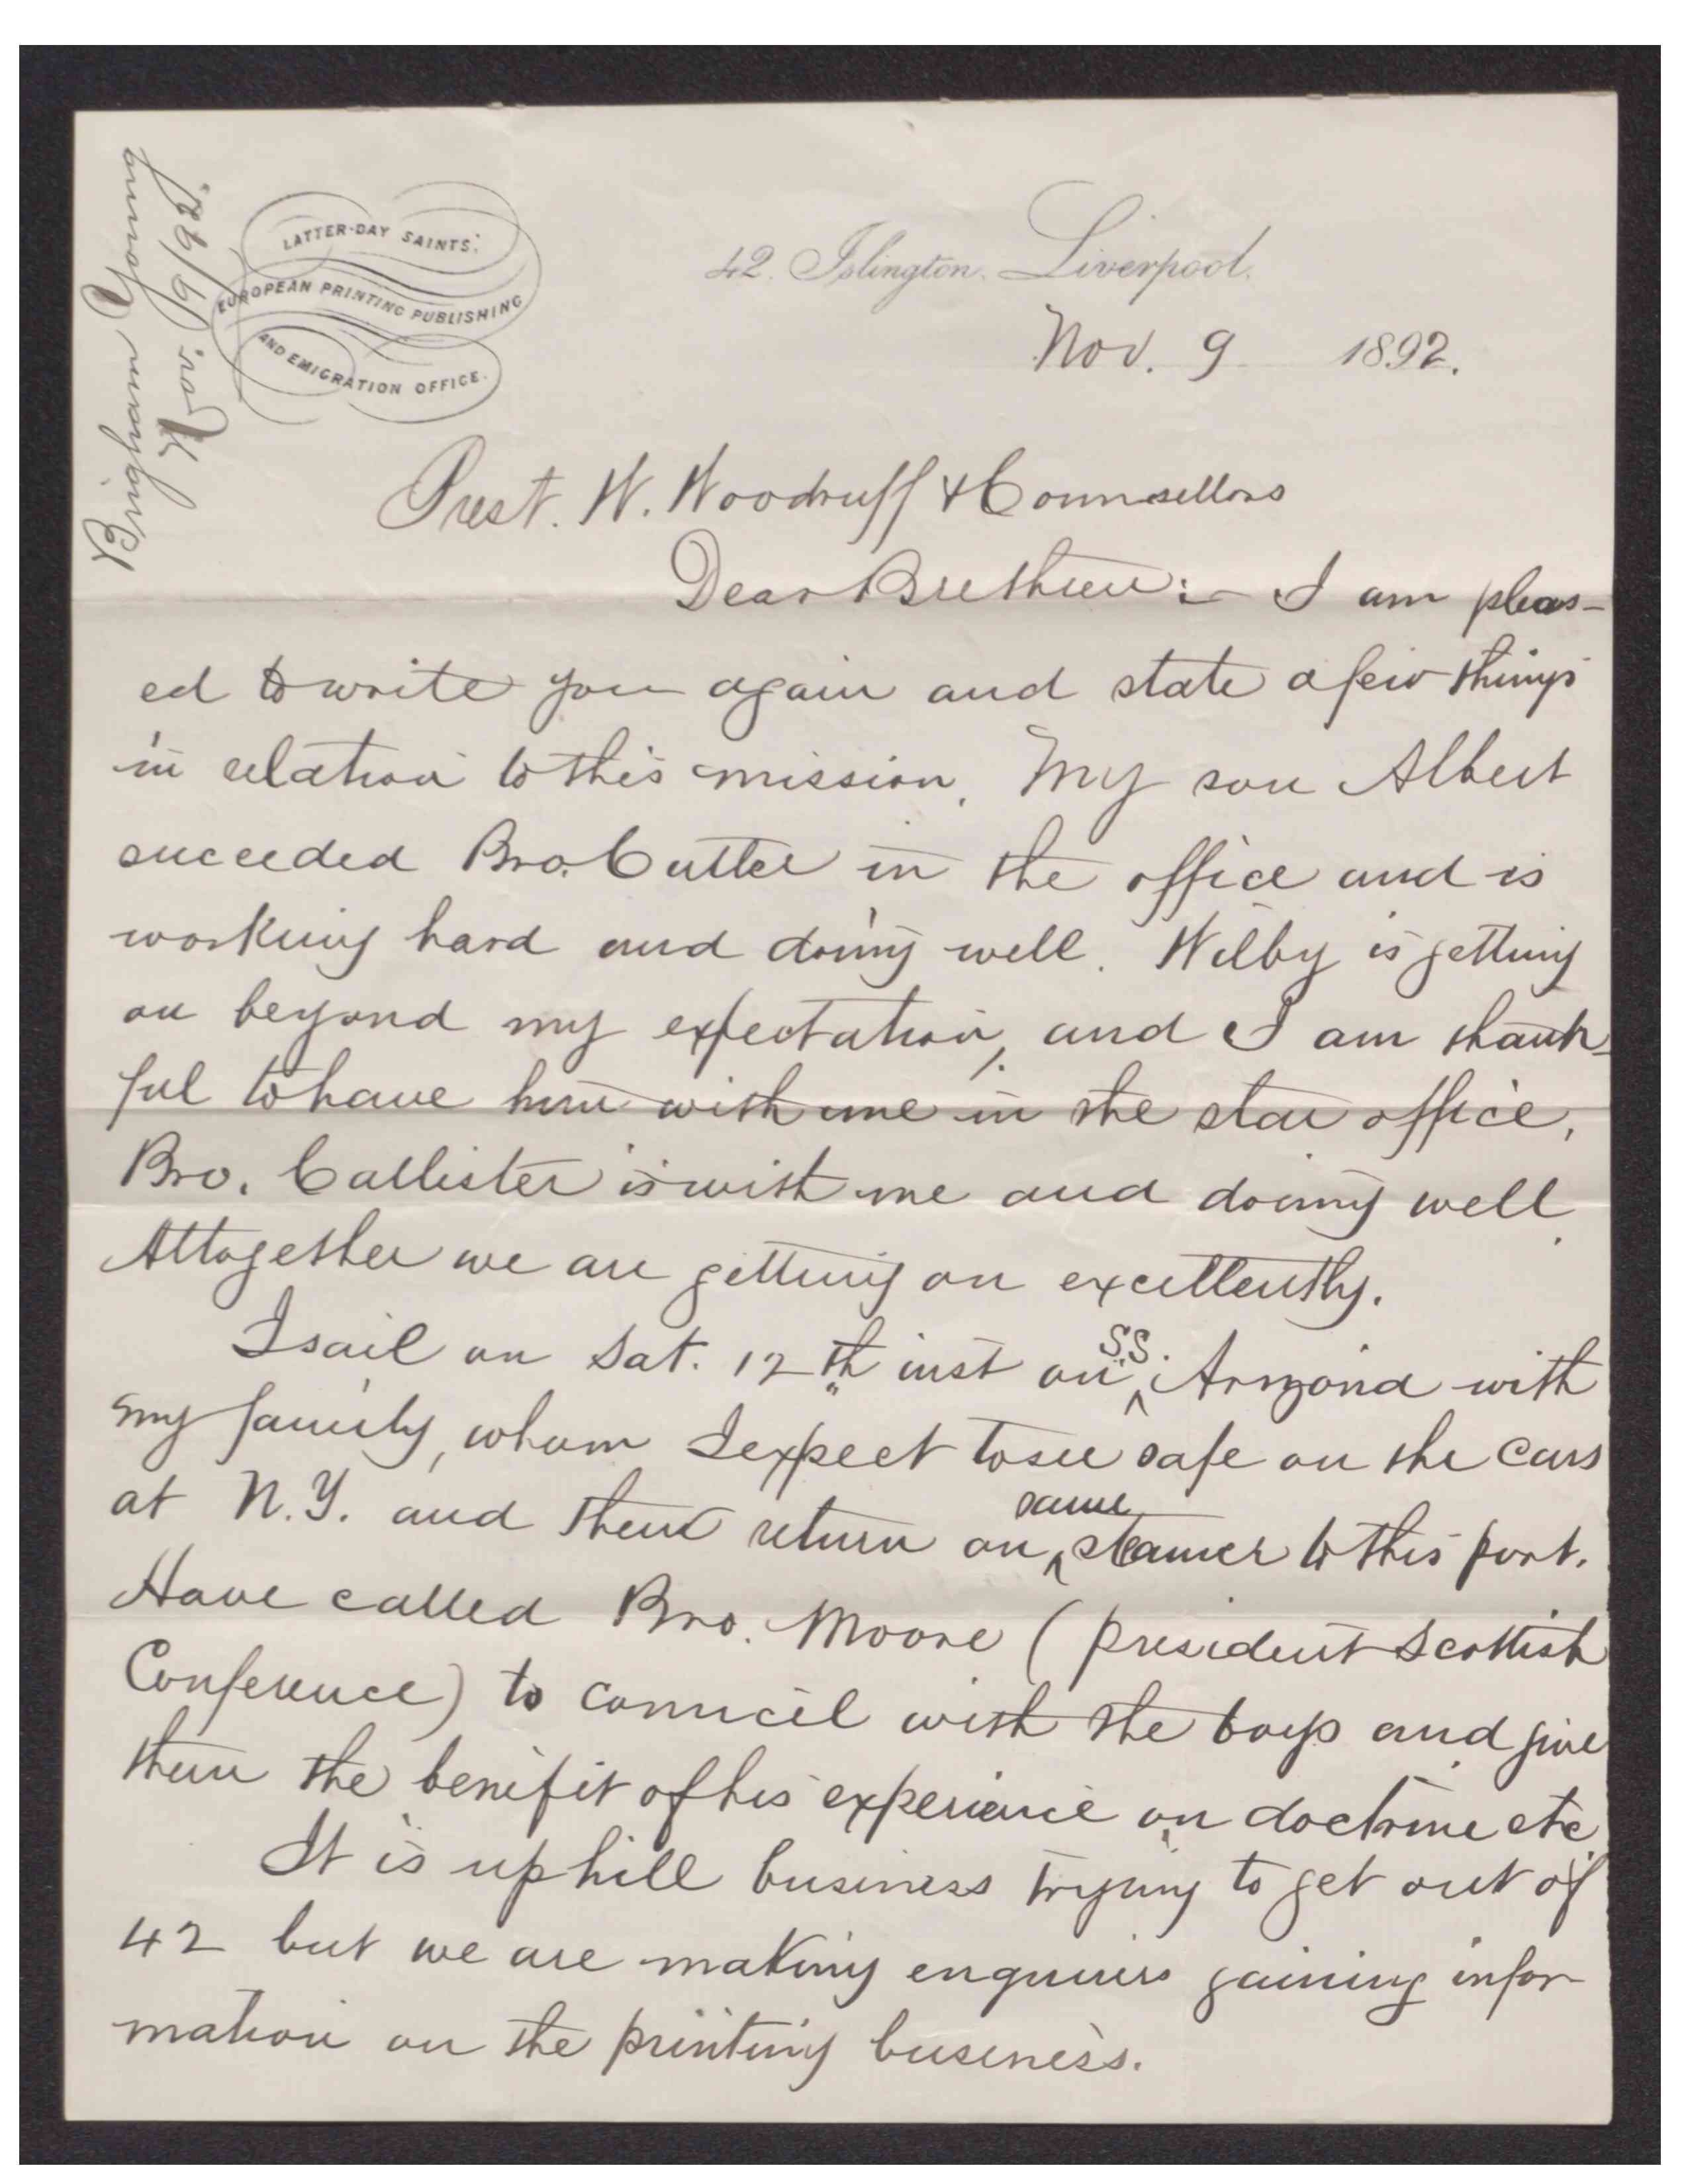 Brigham Young
Nov. 9/92.
LATTER-DAY SAINTS'
EUROPEAN PRINTING PUBLISHING
AND EMIGRATION OFFICE.
42. Islington. Liverpool.
Nov. 9 1892.
Prest. W. Woodruff & Counsellors
Dear Brethren:- I am pleas-
ed to write you again and state a few things
in relation to this mission. My son Albert
succeeded Bro. Cutler in the office and is
working hard and doing well. Wilby is getting
on beyond my expectation, and I am thank-
ful to have him with me in the star office.
Bro. Callister is with me and doing well.
Altogether we are getting on excellently.
I sail on Sat. 12th inst on SS. Arizona with
my family, whom I expect to see safe on the cars
at N.Y. and then return on same steamer to this port.
Have called Bro. Moore (president Scottish
Conference) to councel with the boys and give
them the benifit of his experience on doctrine etc
It is up hill business trying to get out of
42 but we are making enquiries gaining infor-
mation on the printing business.